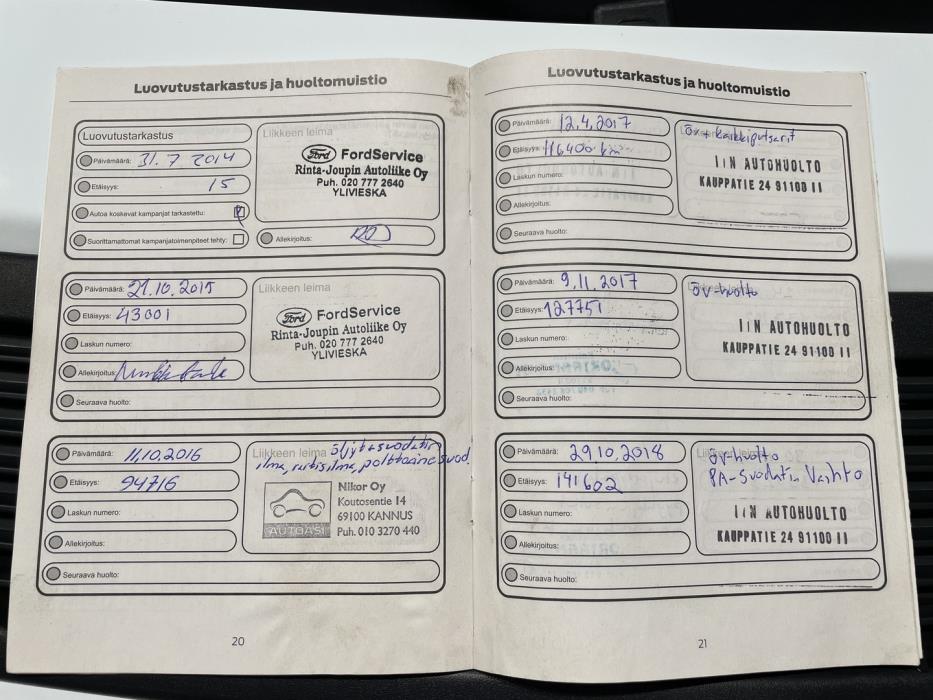 Luovutustarkastus ja huoltomuistio
Luovutustarkastus
Päivämäärä: 31.7 2014
Etäisyys: 15
Autoa koskevat kampanjat tarkastettu:
Suorittamattomat kampanjatoimenpiteet tehty:
Liikkeen leima
Ford FordService
Rinta-Joupin Autoliike Oy
Puh. 020 777 2640
YLIVIESKA
Allekirjoitus:
Päivämäärä: 21.10.2015
Etäisyys: 43001
Laskun numero:
Allekirjoitus:
Seuraava huolto:
Liikkeen leima
Ford FordService
Rinta-Joupin Autoliike Oy
Puh. 020 777 2640
YLIVIESKA
Päivämäärä: 11.10.2016
Etäisyys: 94716
Laskun numero:
Allekirjoitus:
Seuraava huolto:
Liikkeen leima
ilma, raitisilma, polttoainesuod.
AUTOASI
Nikor Oy
Koutosentie 14
69100 KANNUS
Puh. 010 3270 440
20
Luovutustarkastus ja huoltomuistio
Päivämäärä: 12.4.2017
Etäisyys: 116400 km
Laskun numero:
Allekirjoitus:
Seuraava huolto:
öv+kaikkiputsarit
IIN AUTOHUOLTO
KAUPPATIE 24 91100 II
Päivämäärä: 9.11.2017
Etäisyys: 127751
Laskun numero:
Allekirjoitus:
Seuraava huolto:
öv-huolto
IIN AUTOHUOLTO
KAUPPATIE 24 91100 II
Päivämäärä: 29.10.2018
Etäisyys: 141602
Laskun numero:
Allekirjoitus:
Seuraava huolto:
öv-huolto
PA-Suodatin Vaihto
IIN AUTOHUOLTO
KAUPPATIE 24 91100 II
21